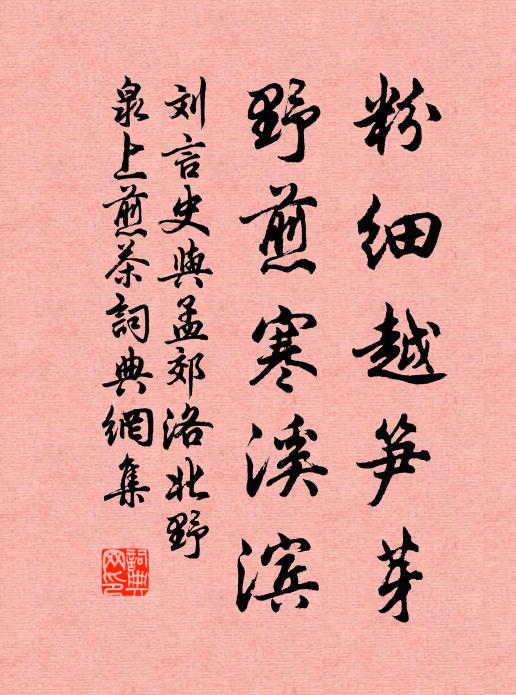 粉细越笋芽
野煎寒溪滨
刘言史與孟郊洛北野
泉上煎茶詞典網集
詞典网印